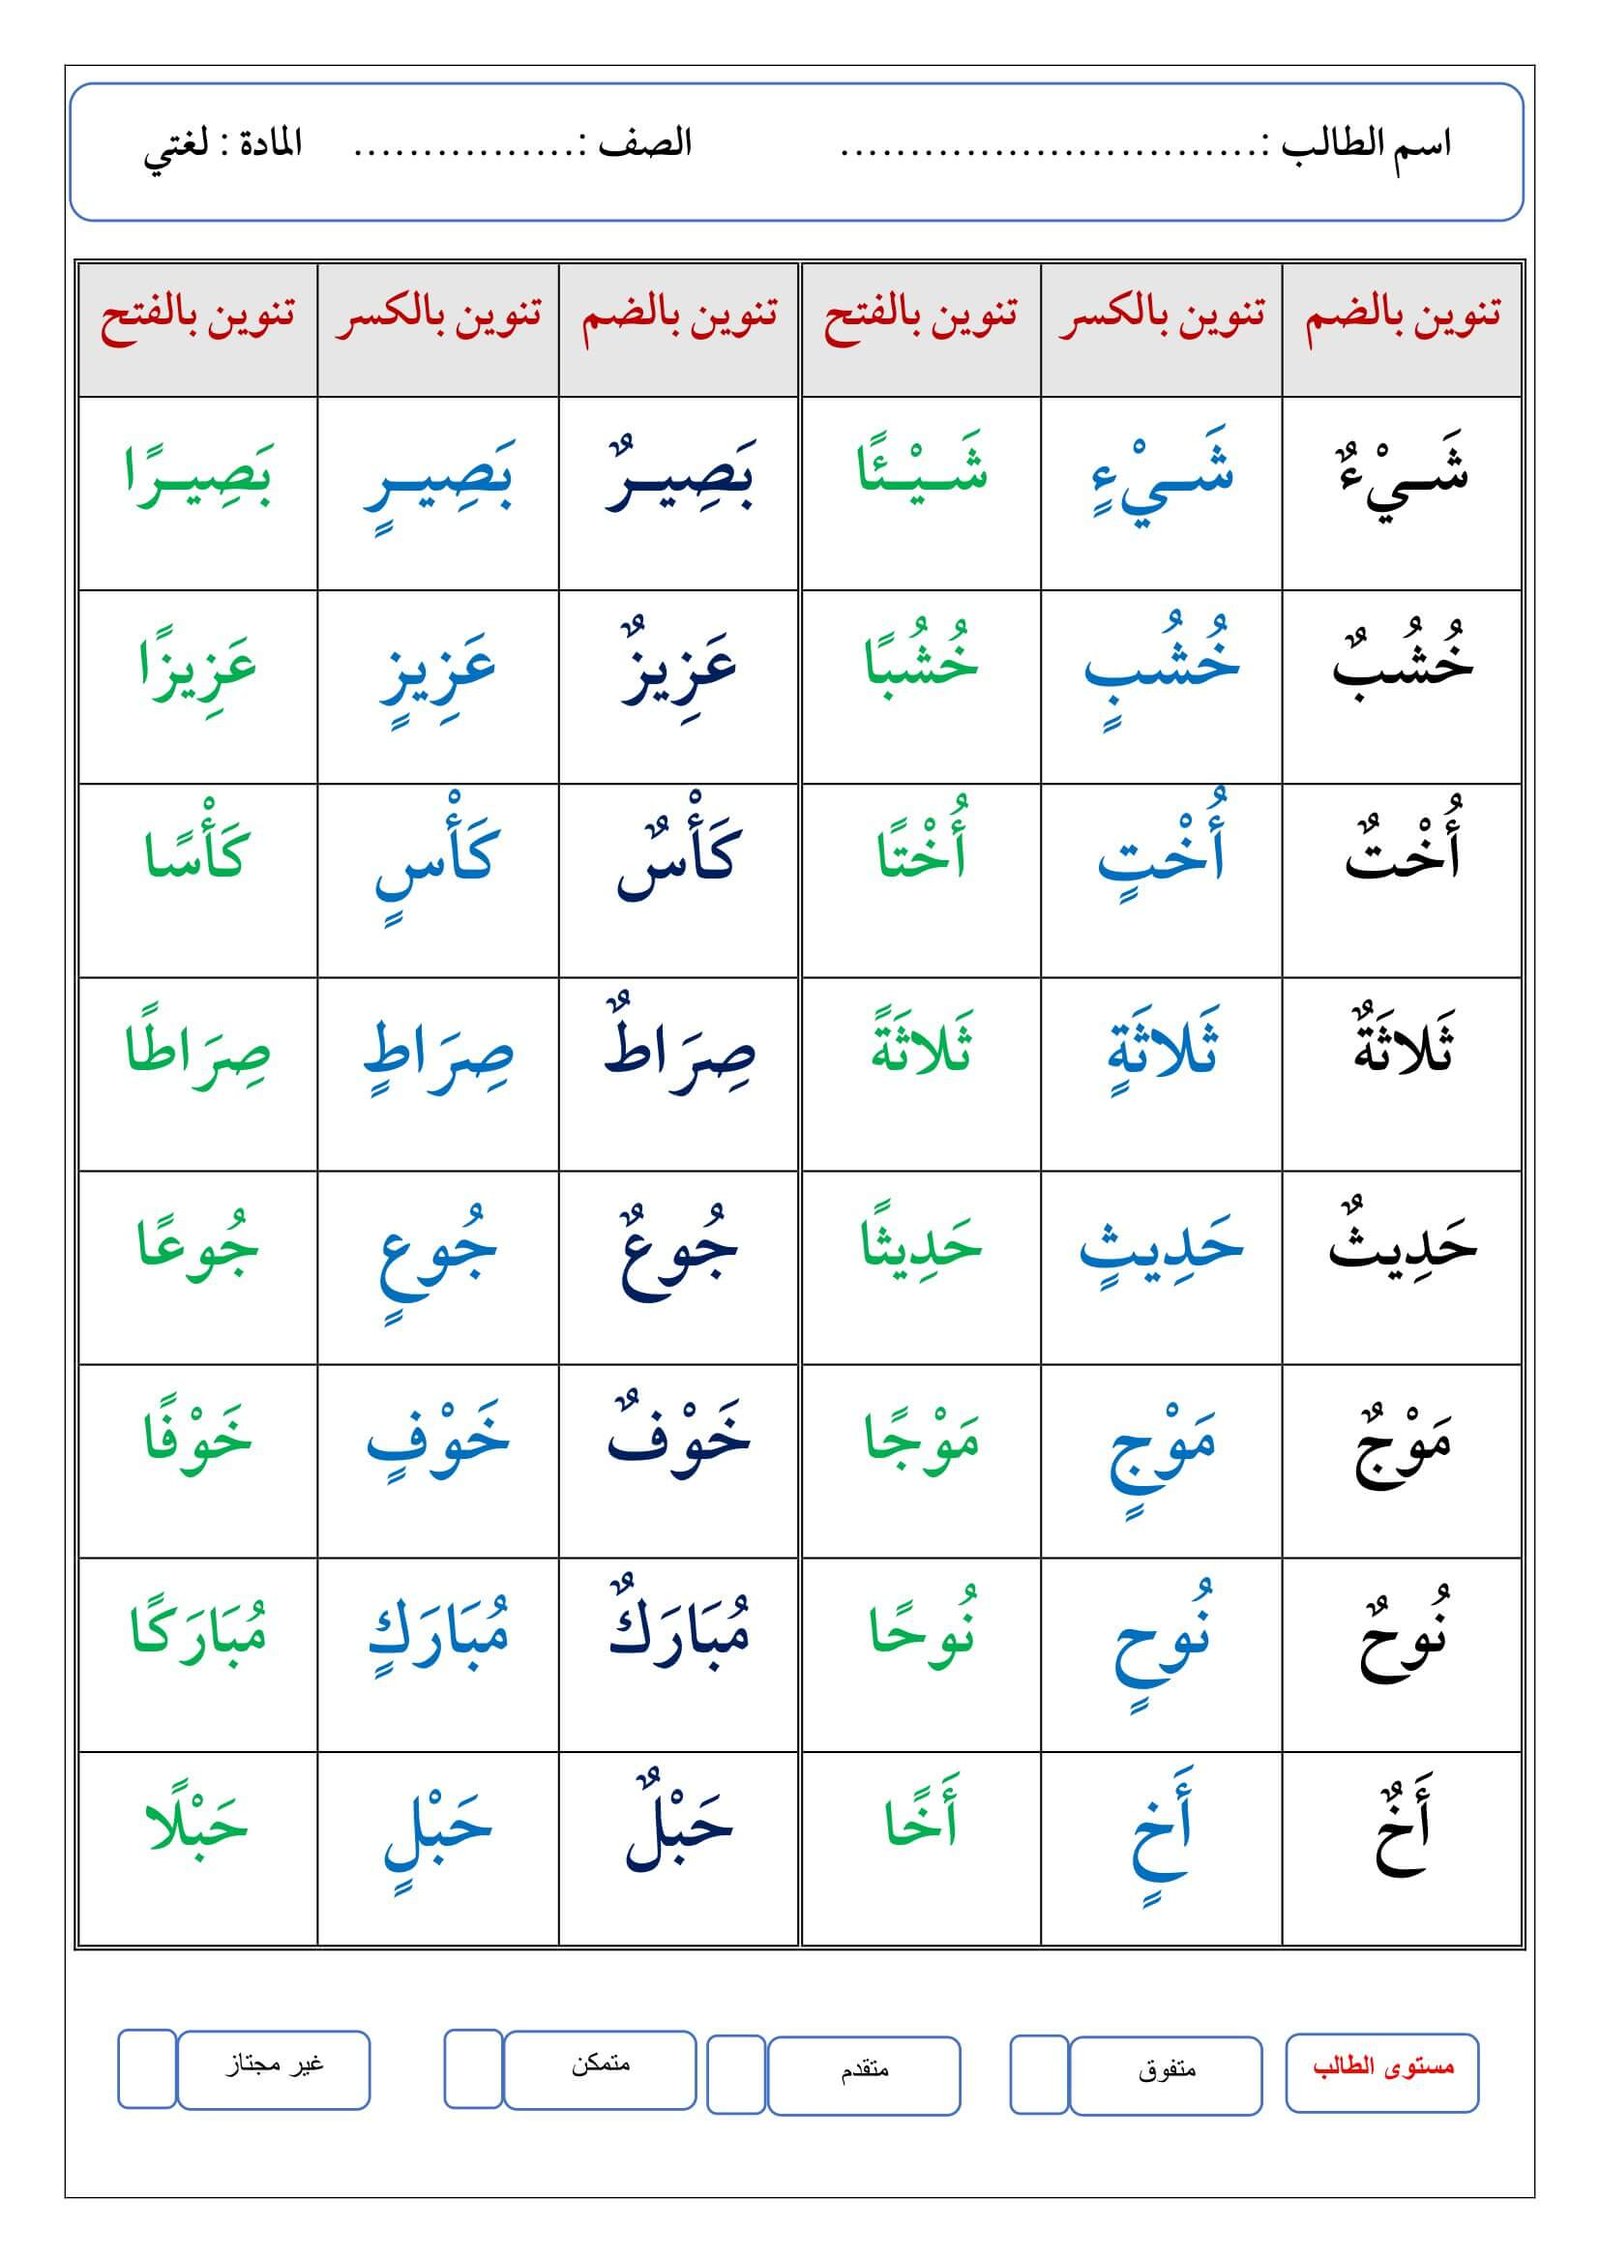 اسم الطالب :.............................. الصف :................ المادة : لغتي
تنوين بالضم تنوين بالكسر تنوين بالفتح تنوين بالضم تنوين بالكسر تنوين بالفتح
شَـيْءٌ شَـيْءٍ شَـيْـئًا بَصِيـرٌ بَصِيـرٍ بَصِيـرًا
خُشُبٌ خُشُبٍ خُشُبًا عَزِيزٌ عَزِيزٍ عَزِيزًا
أُخْتٌ أُخْتٍ أُخْتًا كَأْسٌ كَأْسٍ كَأْسًا
ثَلاثَةٌ ثَلاثَةٍ ثَلاثَةً صِرَاطٌ صِرَاطٍ صِرَاطًا
حَدِيثٌ حَدِيثٍ حَدِيثًا جُوعٌ جُوعٍ جُوعًا
مَوْجٌ مَوْجٍ مَوْجًا خَوْفٌ خَوْفٍ خَوْفًا
نُوحٌ نُوحٍ نُوحًا مُبَارَكٌ مُبَارَكٍ مُبَارَكًا
أَخٌ أَخٍ أَخًا حَبْلٌ حَبْلٍ حَبْلًا
مستوى الطالب متفوق متقدم متمكن غير مجتاز